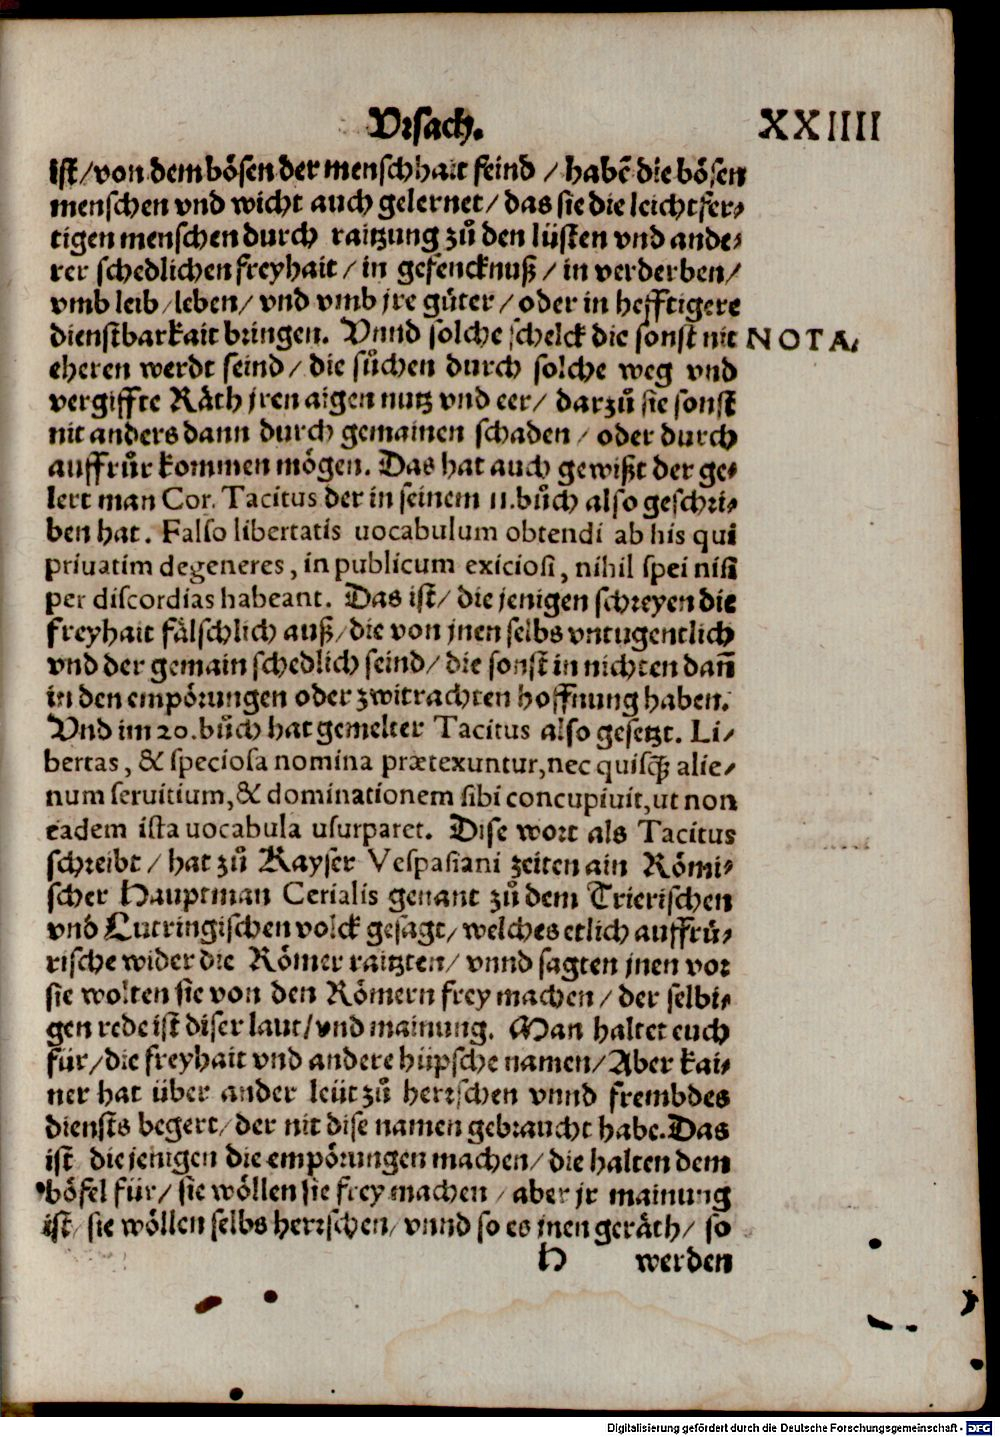 Vrsach.
XXIIII
ist/ von dem bösen der menschhait feind / habẽ die bösen
menschen vnd wicht auch gelernet/ das sie die leichtfer⸗
tigen menschen durch raitzung zů den lüsten vnd ande⸗
rer schedlichen freyhait / in gefencknuß / in verderben/
vmb leib/ leben/ vnd vmb jre güter/ oder in hefftigere
dienstbarkait bringen. Vnnd solche schelck die sonst nit
NOTA.
eheren werdt seind/ die sůchen durch solche weg vnd
vergiffte Räth jren aigen nutz vnd eer/ darzů sie sonst
nit anders dann durch gemainen schaden / oder durch
auffrůr kommen mögen. Das hat auch gewißt der ge⸗
lert man Cor. Tacitus der in seinem 11.bůch also geschri⸗
ben hat. Falso libertatis uocabulum obtendi ab his qui
priuatim degeneres, in publicum exiciosi, nihil spei nisi
per discordias habeant. Das ist/ die jenigen schreyen die
freyhait fälschlich auß/ die von jnen selbs vntugentlich
vnd der gemain schedlich seind/ die sonst in nichten dañ
in den empörungen oder zwitrachten hoffnung haben.
Vnd im 20.bůch hat gemelter Tacitus also gesetzt. Li⸗
bertas, & speciosa nomina prætexuntur, nec quisꝗ̃ alie⸗
num seruitium, & dominationem sibi concupiuit, ut non
eadem ista uocabula usurparet. Dise wort als Tacitus
schreibt/ hat zů Kayser Vespasiani zeiten ain Römi⸗
scher Hauptman Cerialis genant zů dem Trierischen
vnd Lutringischen volck gesagt/ welches etlich auffrů⸗
rische wider die Römer raitzten/ vnnd sagten jnen vor
sie wolten sie von den Römern frey machen/ der selbi⸗
gen rede ist diser laut/ vnd mainung. Man haltet euch
für/ die freyhait vnd andere hüpsche namen/ Aber kai⸗
ner hat über ander leüt zů herrschen vnnd frembdes
diensts begert/ der nit dise namen gebraucht habe. Das
ist die jenigen die empörungen machen/ die halten dem
böfel für/ sie wöllen sie frey machen / aber jr mainung
ist/ sie wöllen selbs herrschen/ vnnd so es jnen geräth/ so
H werden
Digitalisierung gefördert durch die Deutsche Forschungsgemeinschaft - DFG